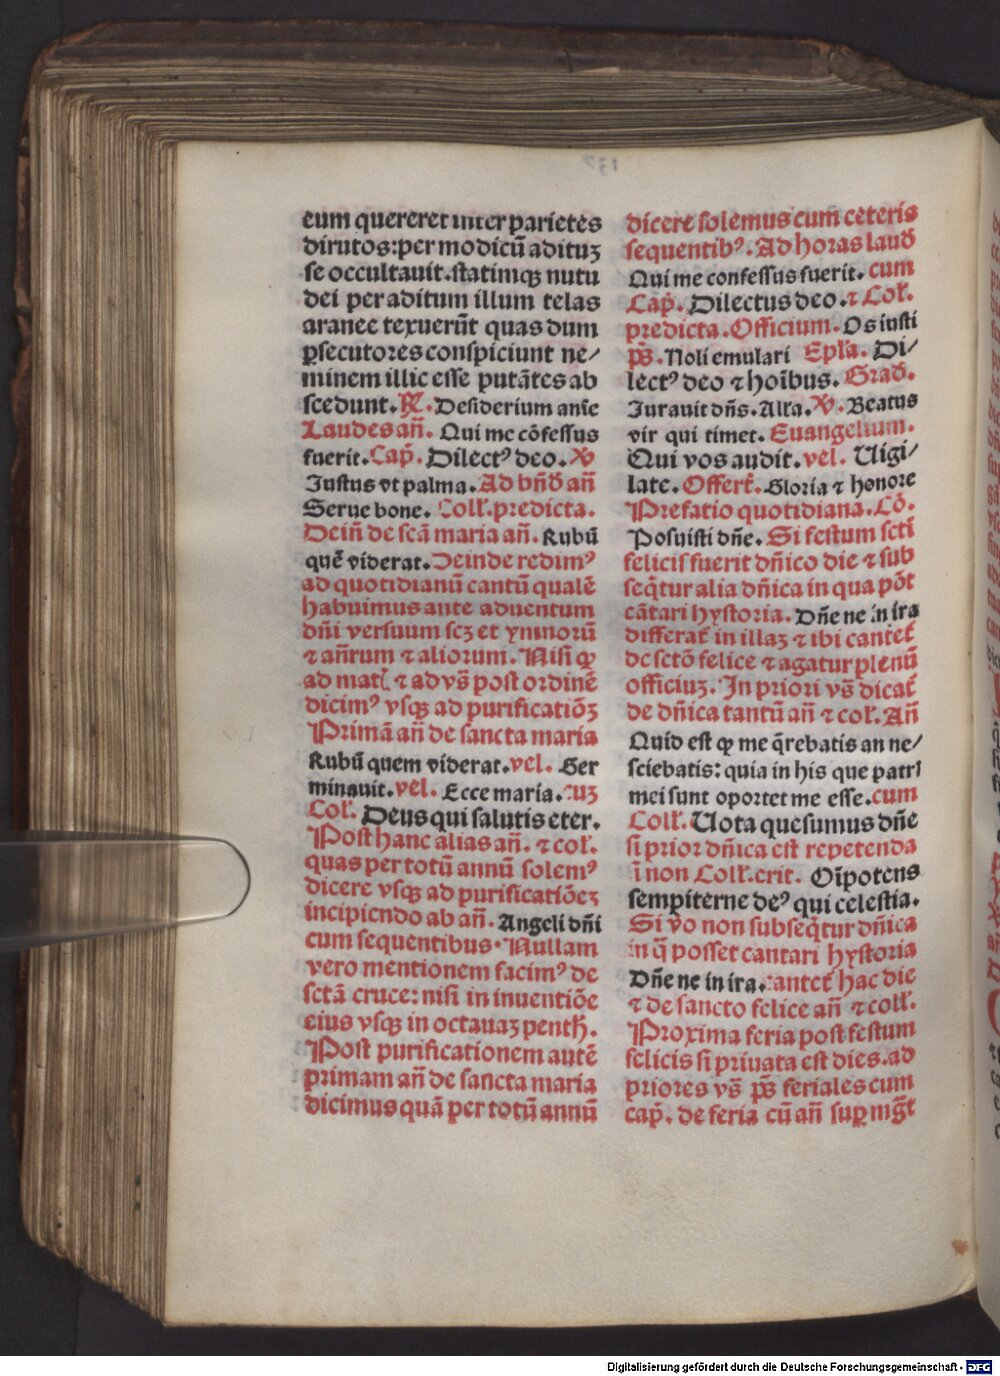 eum quereret inter parietes
dirutos:per modicū adituꝫ
se occultauit.statimqꝫ nutu
dei per aditum illum telas
aranee texuerūt quas dum
ꝑsecutores conspiciunt ne/
minem illic esse putātes ab
scedunt.℟.Desiderium anīe
Laudes an̄. Qui me cōfessus
fuerit.Cap̄. Dilectꝰ deo.℣
Justus vt palma.Ad bn̄d̄ an̄
Serue bone. Coll̄.predicta.
Dein̄ de scā maria an̄. Rubū
quē viderat.Deinde redimꝰ
ad quotidianū cantū qualē
habuimus ante aduentum
dn̄i versuum scꝫ et ymnorū
⁊ an̄rum ⁊ aliorum. Nisi ꝙ
ad mat̄ ⁊ ad vs̄ post ordinē
dicimꝰ vsqꝫ ad purificatiōꝫ
Primā an̄ de sancta maria
Rubū quem viderat.vel. Ger
minauit.vel. Ecce maria.cuꝫ
Col̄. Deus qui salutis eter.
Post hanc alias an̄. ⁊ col̄.
quas per totū annū solemꝰ
dicere vsqꝫ ad purificatiōeꝫ
incipiendo ab an̄. Angeli dn̄i
cum sequentibus. Nullam
vero mentionem facimꝰ de
sctā cruce: nisi in inuentiōe
eius vsqꝫ in octauaꝫ penth̄.
Post purificationem autē
primam an̄ de sancta maria
dicimus quā per totū annū
dicere solemus cum ceteris
sequentibꝰ. Ad horas laud̄
Qui me confessus fuerit. cum
Cap̄. Dilectus deo.⁊ Col̄.
predicta. Officium. Os iusti
p̄s̄. Noli emulari Epl̄a. Di/
lectꝰ deo ⁊ hoībus. Grad̄.
Jurauit dn̄s. Alla.℣. Beatus
vir qui timet. Euangelium.
Qui vos audit. vel. Uigi/
late. Offert̄. Gloria ⁊ honore
Prefatio quotidiana. Cō.
Posuisti dn̄e. Si festum sctī
felicis fuerit dn̄ico die ⁊ sub
seq̄tur alia dn̄ica in qua pōt
cātari hystoria. Dn̄e ne in ira
differat̄ in illaꝫ ⁊ ibi cantet̄
de sctō felice ⁊ agatur plenū
officiuꝫ. In priori vs̄ dicat̄
de dn̄ica tantū an̄ ⁊ col̄. An̄
Quid est ꝙ me q̄rebatis an ne/
sciebatis: quia in his que patri
mei sunt oportet me esse.cum
Coll̄. Uota quesumus dn̄e
si prior dn̄ica est repetenda
ī non Coll̄.erit. Oīpotens
sempiterne deꝰ qui celestia.
Si vo non subseq̄tur dn̄ica
in q̄ posset cantari hystoria
Dn̄e ne in ira.cantet̄ hac die
⁊ de sancto felice an̄ ⁊ coll̄.
Proxima feria post festum
felicis si priuata est dies.ad
priores vs̄ p̄s̄ feriales cum
cap̄. de feria cū an̄ suꝑ mḡt
Digitalisierung gefördert durch die Deutsche Forschungsgemeinschaft - DFG